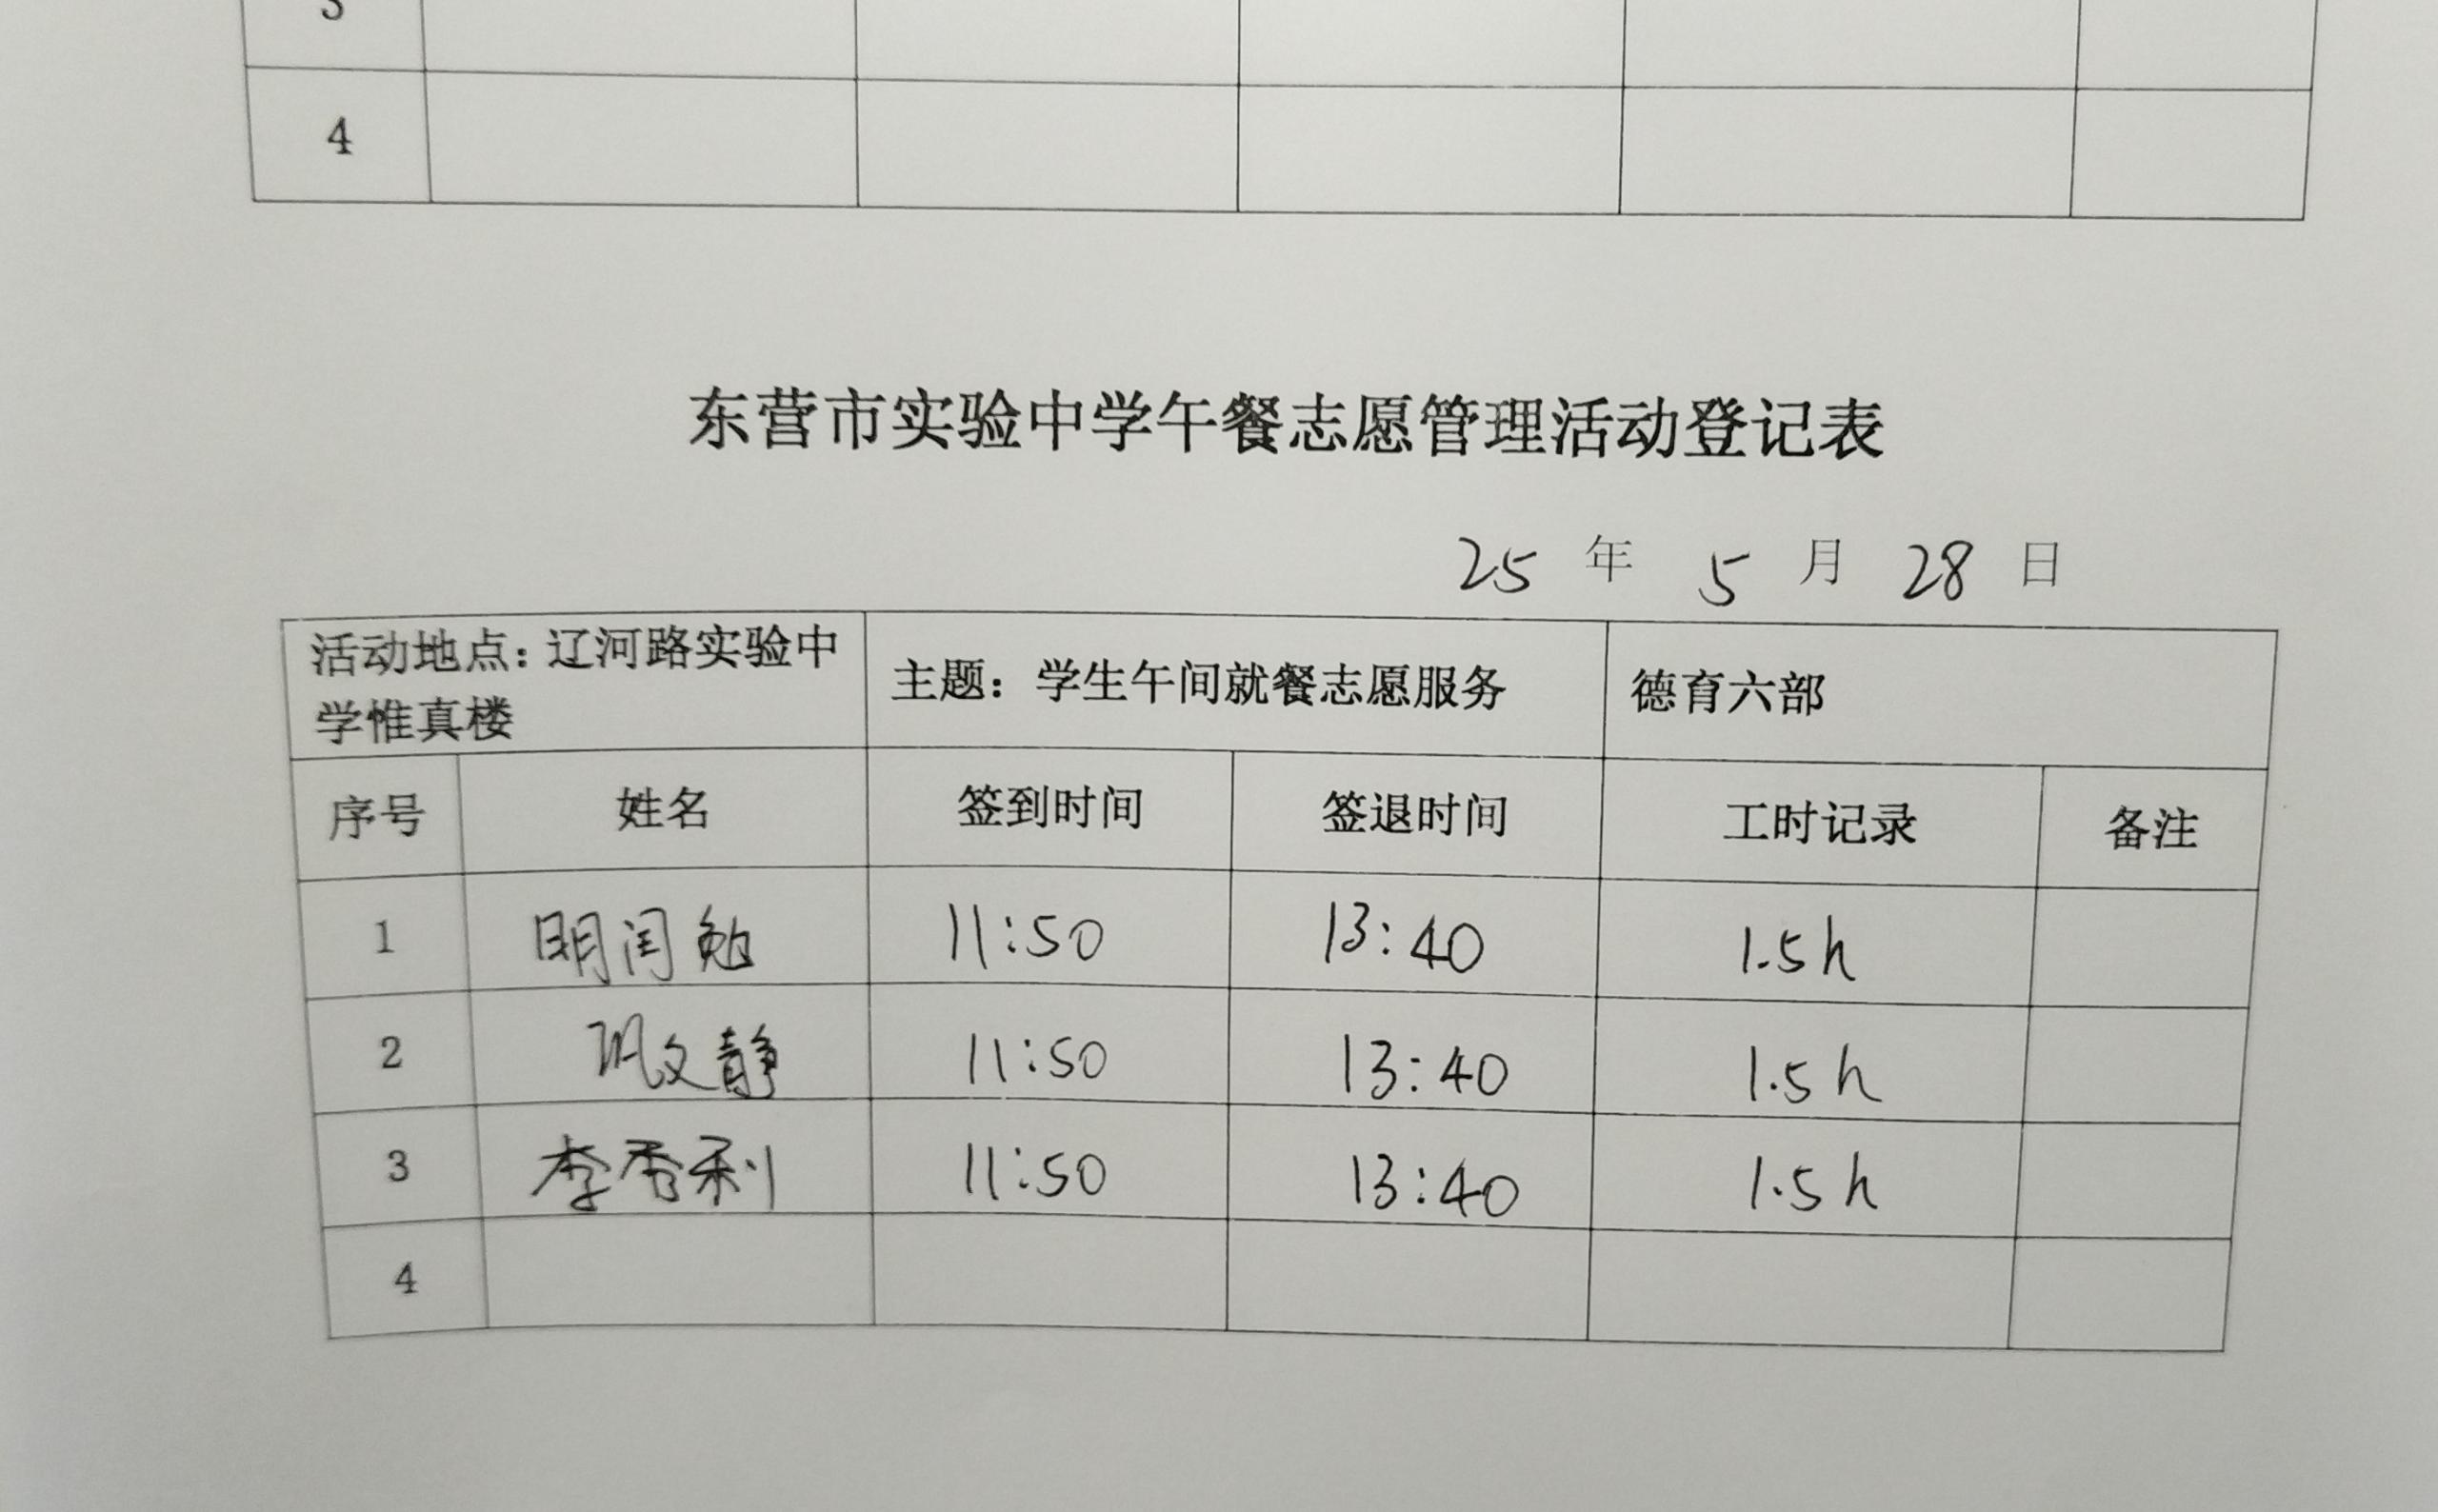 3
4
东营市实验中学午餐志愿管理活动登记表
25 年 5 月 28 日
活动地点：辽河路实验中
学惟真楼
主题：学生午间就餐志愿服务
德育六部
序号 姓名 签到时间 签退时间 工时记录 备注
1 明闰勉 11:50 13:40 1.5h
2 巩文静 11:50 13:40 1.5h
3 李秀利 11:50 13:40 1.5h
4